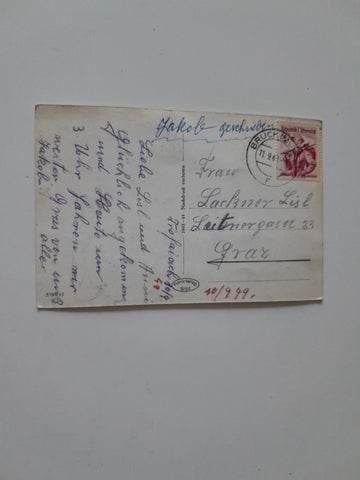 Jakob geschrieben
BRUCK
11.9.49
Trofaiach 10/9
49
Liebe Lisl und
Glücklich angekommen
und Heute um
3 Uhr fahren wir
weiter Grus von uns
allen
Jakob
Nachdruck verboten
Frau
Lackner Lisl
Leitnergasse 23
Graz
10/9 49.